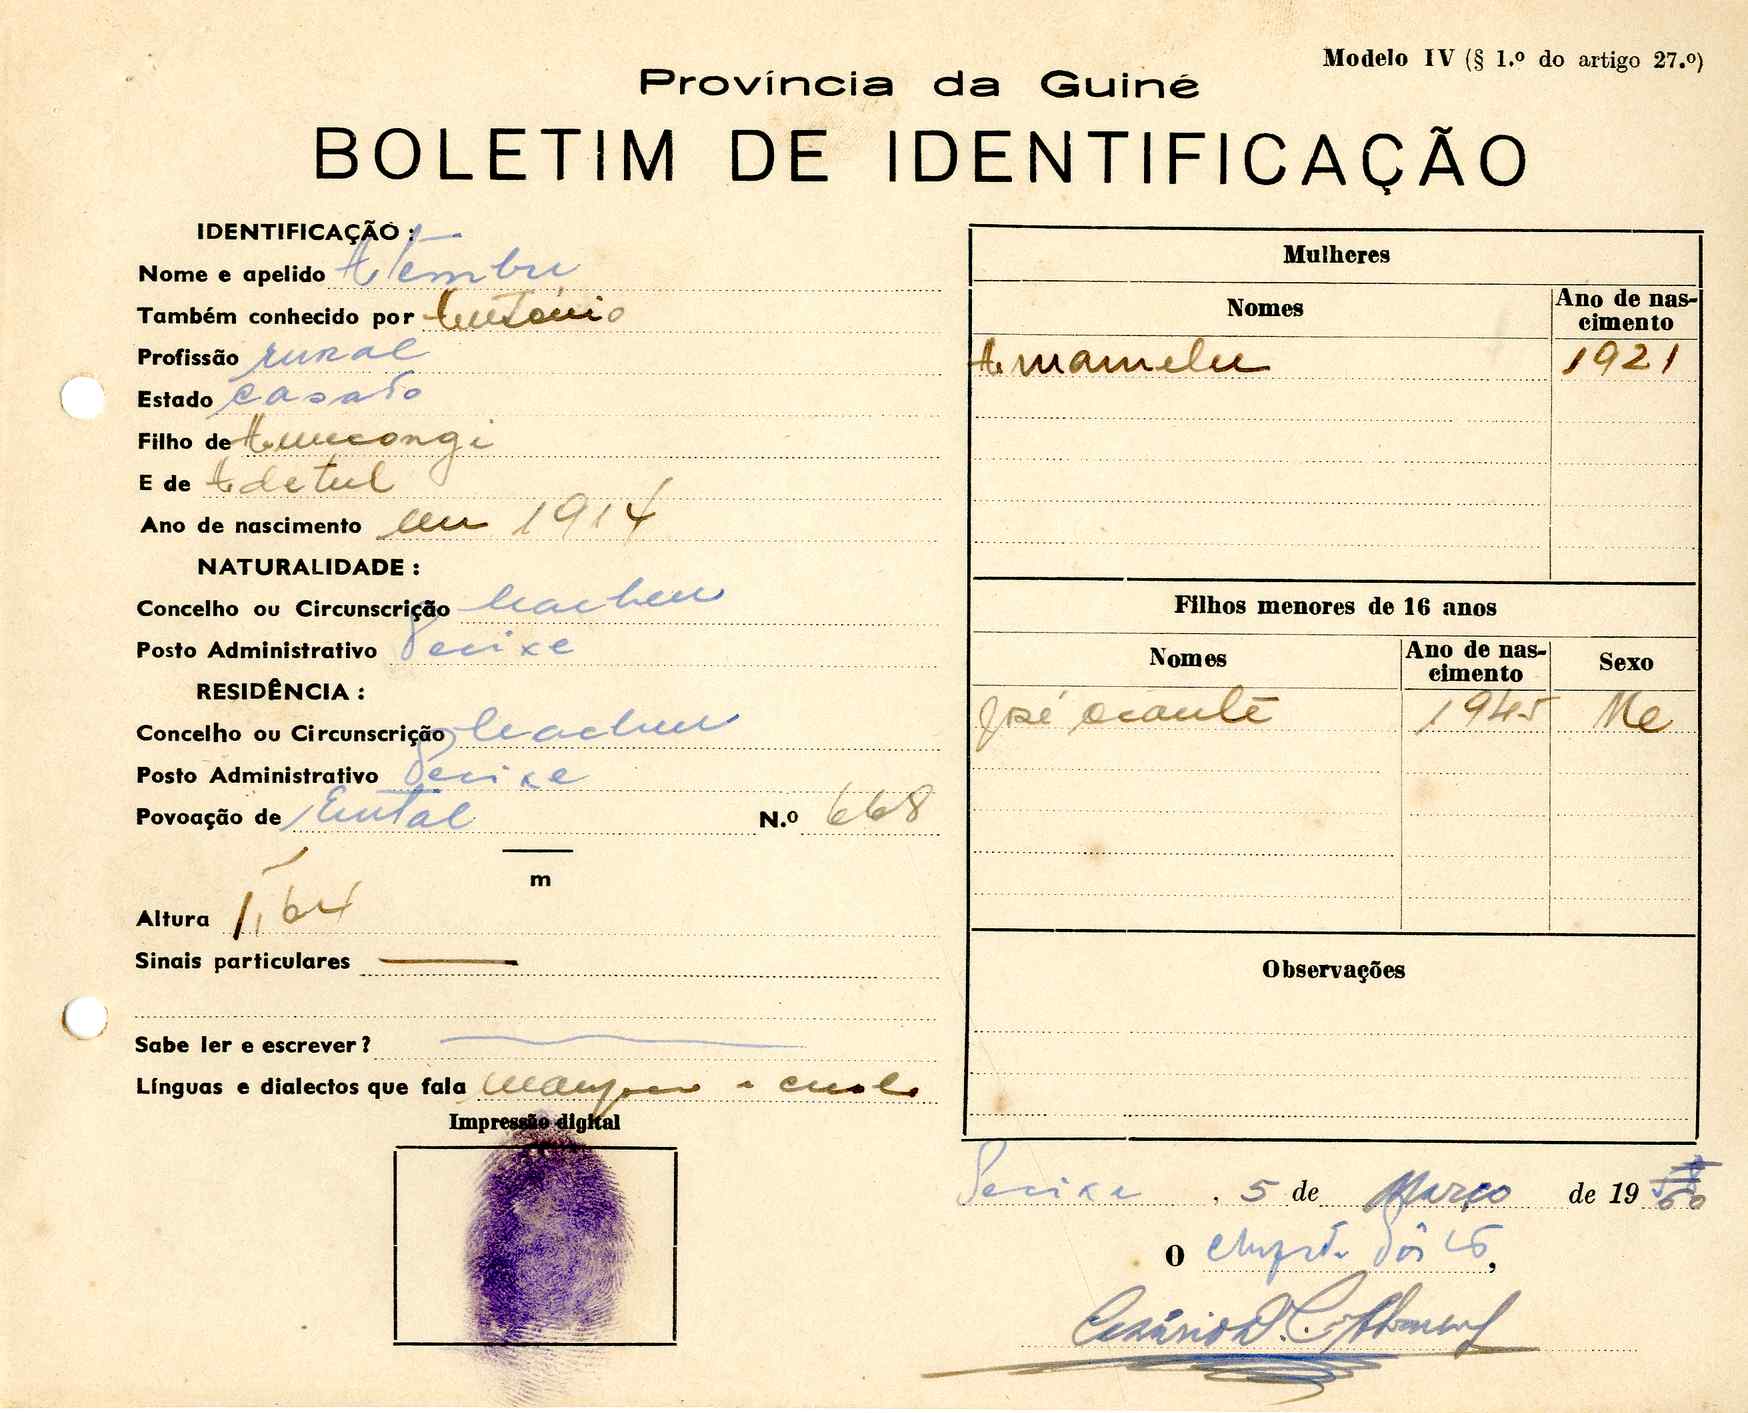 Modelo IV (§ 1.º do artigo 27.º)
Província da Guiné
BOLETIM DE IDENTIFICAÇÃO
IDENTIFICAÇÃO:
Nome e apelido Atembu
Também conhecido por António
Profissão rural
Estado casado
Filho de
E de Adetul
Ano de nascimento em 1914
NATURALIDADE:
Concelho ou Circunscrição Cacheu
Posto Administrativo Pecixe
RESIDÊNCIA:
Concelho ou Circunscrição Cacheu
Posto Administrativo Pecixe
Povoação de N.º 668
m
Altura 1,64
Sinais particulares
Sabe ler e escrever?
Línguas e dialectos que fala
Impressão digital
Mulheres
Nomes
Ano de nas-
cimento
Amamelu 1921
Filhos menores de 16 anos
Nomes
Ano de nas-
cimento
Sexo
José 1945
Observações
Pecixe, 5 de Março de 1960
O Chefe do Pôsto,